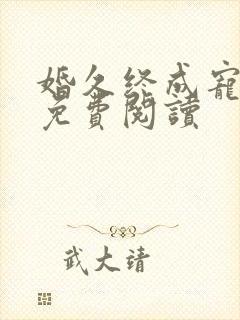 婚久终成宠
免費閱讀
武大靖